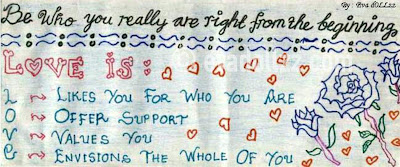 By: Eva dOLLzz
Be Who you really are right from the beginning
LOVE IS:
L → LIKES YOU FOR WHO YOU ARE
O → OFFER SUPPORT
V → VALUES YOU
E → ENVISIONS THE WHOLE OF YOU